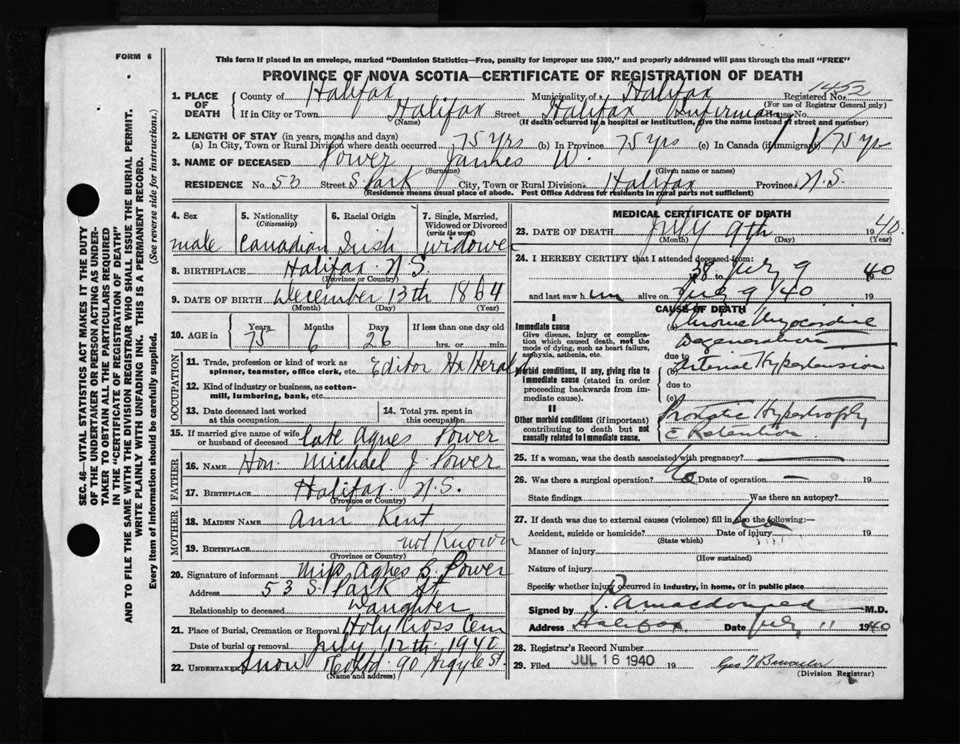 FORM 6
This form if placed in an envelope, marked "Dominion Statistics—Free, penalty for improper use $300," and properly addressed will pass through the mail "FREE"
PROVINCE OF NOVA SCOTIA—CERTIFICATE OF REGISTRATION OF DEATH
SEC. 46—VITAL STATISTICS ACT MAKES IT THE DUTY
OF THE UNDERTAKER OR PERSON ACTING AS UNDER-
TAKER TO OBTAIN ALL THE PARTICULARS REQUIRED
IN THE "CERTIFICATE OF REGISTRATION OF DEATH"
AND TO FILE THE SAME WITH THE DIVISION REGISTRAR WHO SHALL ISSUE THE BURIAL PERMIT.
WRITE PLAINLY WITH UNFADING INK. THIS IS A PERMANENT RECORD.
Every item of information should be carefully supplied. (See reverse side for instructions.)
1. PLACE OF DEATH County of Halifax Municipality of Halifax Registered No. 1452
(For use of Registrar General only)
If in City or Town Halifax Street Halifax Infirmary House No.
(Name) (If death occurred in a hospital or institution, give the name instead of street and number)
2. LENGTH OF STAY (in years, months and days)
(a) In City, Town or Rural Division where death occurred 75 yrs (b) In Province 75 yrs (c) In Canada (if immigrant) 75 yrs
3. NAME OF DECEASED Power James W.
(Surname) (Given name or names)
RESIDENCE No. 53 Street S Park City, Town or Rural Division Halifax Province N.S.
(Residence means usual place of abode. Post Office Address for residents in rural parts not sufficient)
4. Sex male
5. Nationality (Citizenship) Canadian
6. Racial Origin Irish
7. Single, Married, Widowed or Divorced (write the word) widower
8. BIRTHPLACE Halifax N.S.
(Province or Country)
9. DATE OF BIRTH December 13th 1864
(Month) (Day) (Year)
10. AGE in Years 75 Months 6 Days 26 If less than one day old hrs. or min.
OCCUPATION
11. Trade, profession or kind of work as spinner, teamster, office clerk, etc. Editor Hx Herald
12. Kind of industry or business, as cotton-mill, lumbering, bank, etc.
13. Date deceased last worked at this occupation
14. Total yrs. spent in this occupation
15. If married give name of wife or husband of deceased late Agnes Power
FATHER
16. NAME Hon. Michael J Power
17. BIRTHPLACE Halifax N.S.
(Province or Country)
MOTHER
18. MAIDEN NAME Ann Kent
19. BIRTHPLACE not known
(Province or Country)
20. Signature of informant Miss Agnes Power
Address 53 S. Park St
Relationship to deceased Daughter
21. Place of Burial, Cremation or Removal Holy Cross Cem
Date of burial or removal July 12th 1940
22. UNDERTAKER Snow 90 Argyle St.
(Name and address)
MEDICAL CERTIFICATE OF DEATH
23. DATE OF DEATH July 9th 1940.
(Month) (Day) (Year)
24. I HEREBY CERTIFY that I attended deceased from:
38 to July 9 40
and last saw him alive on July 9/40 19
CAUSE OF DEATH
I
Immediate cause
Give disease, injury or complication which caused death, not the mode of dying, such as heart failure, asphyxia, asthenia, etc.
(a) Chronic Myocardial Degeneration
due to
Morbid conditions, if any, giving rise to immediate cause (stated in order proceeding backwards from immediate cause).
(b) Arterial Hypertension
due to
(c)
II
Other morbid conditions (if important) contributing to death but not causally related to immediate cause.
Prostatic Hypertrophy
c Retention
25. If a woman, was the death associated with pregnancy?
26. Was there a surgical operation? No Date of operation – 19
State findings Was there an autopsy?
27. If death was due to external causes (violence) fill in also the following:
Accident, suicide or homicide? Date of injury 19
(State which)
Manner of injury
(How sustained)
Nature of injury
Specify whether injury occurred in industry, in home, or in public place
Signed by Macdonald M.D.
Address Halifax. Date July 11 1940
28. Registrar's Record Number
29. Filed JUL 16 1940 19
(Division Registrar)